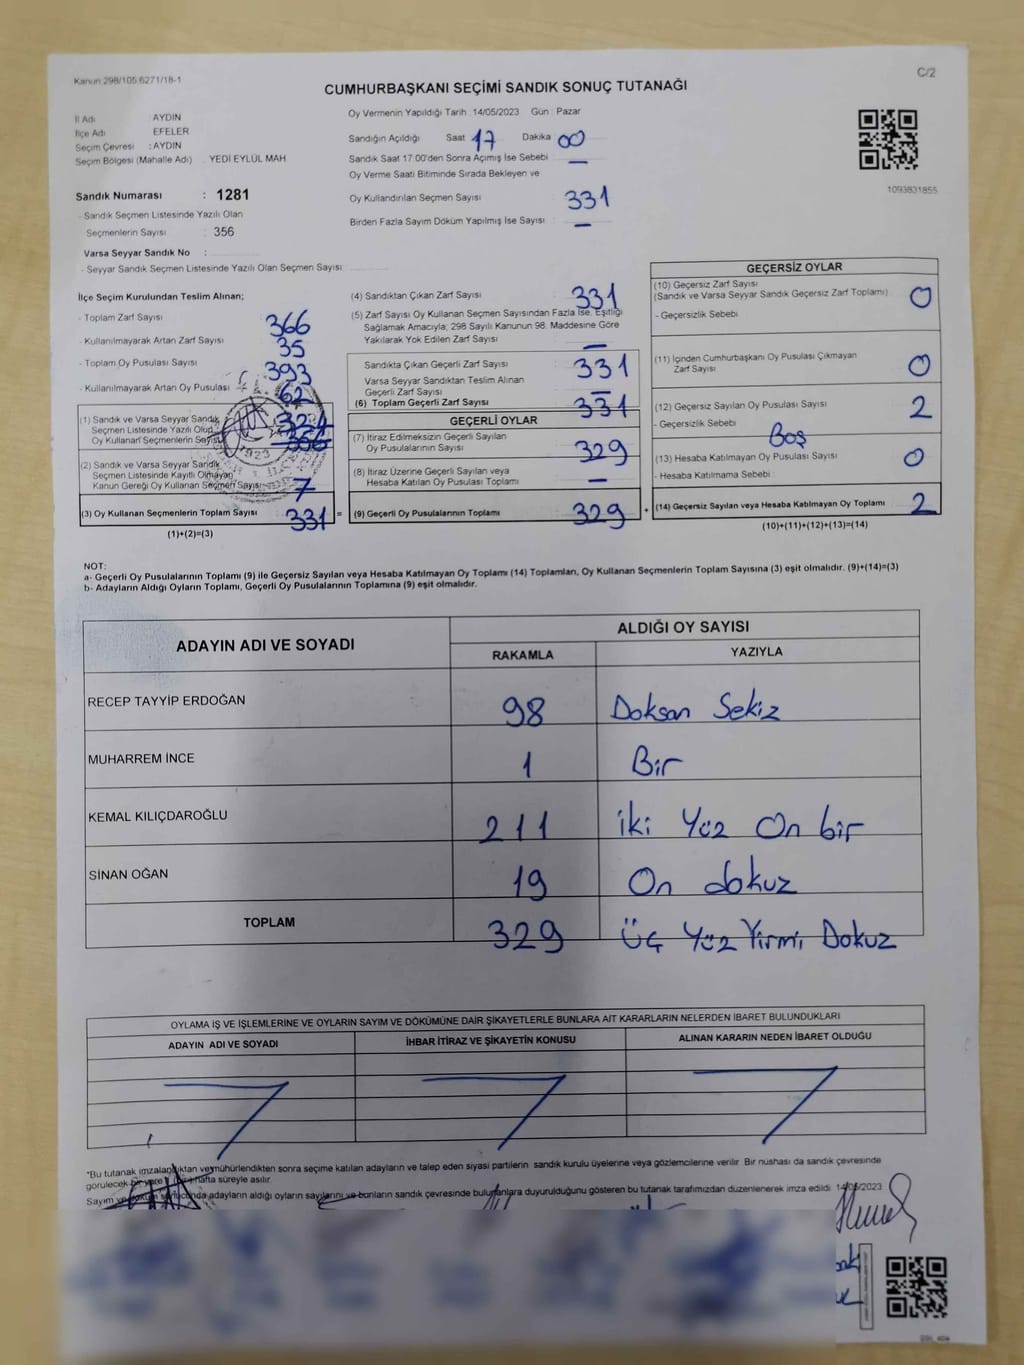 Kanun 298/105 6271/18-1
C/2
CUMHURBAŞKANI SEÇİMİ SANDIK SONUÇ TUTANAĞI
İl Adı AYDIN
İlçe Adı EFELER
Seçim Çevresi : AYDIN
Seçim Bölgesi (Mahalle Adı) . YEDİ EYLÜL MAH
Sandık Numarası : 1281
- Sandık Seçmen Listesinde Yazılı Olan
Seçmenlerin Sayısı : 356
Varsa Seyyar Sandık No :
- Seyyar Sandık Seçmen Listesinde Yazılı Olan Seçmen Sayısı
Oy Vermenin Yapıldığı Tarih : 14/05/2023 Gün : Pazar
Sandığın Açıldığı Saat 17 Dakika 00
Sandık Saat 17.00'den Sonra Açımış İse Sebebi —
Oy Verme Saati Bitiminde Sırada Bekleyen ve
Oy Kullandırılan Seçmen Sayısı 331
Birden Fazla Sayım Döküm Yapılmış İse Sayısı —
1093831855
İlçe Seçim Kurulundan Teslim Alınan;
- Toplam Zarf Sayısı 366
- Kullanılmayarak Artan Zarf Sayısı 35
- Toplam Oy Pusulası Sayısı 393
- Kullanılmayarak Artan Oy Pusulası 62
(1) Sandık ve Varsa Seyyar Sandık 324
Seçmen Listesinde Yazılı Olup
Oy Kullanan Seçmenlerin Sayısı 356
(2) Sandık ve Varsa Seyyar Sandık
Seçmen Listesinde Kayıtlı Olmayan
Kanun Gereği Oy Kullanan Seçmen Sayısı 7
(3) Oy Kullanan Seçmenlerin Toplam Sayısı 331 =
(1)+(2)=(3)
1923
(4) Sandıktan Çıkan Zarf Sayısı 331
(5) Zarf Sayısı Oy Kullanan Seçmen Sayısından Fazla İse, Eşitliği
Sağlamak Amacıyla; 298 Sayılı Kanunun 98. Maddesine Göre
Yakılarak Yok Edilen Zarf Sayısı —
Sandıkta Çıkan Geçerli Zarf Sayısı 331
Varsa Seyyar Sandıktan Teslim Alınan
Geçerli Zarf Sayısı —
(6) Toplam Geçerli Zarf Sayısı 331
GEÇERLİ OYLAR
(7) İtiraz Edilmeksizin Geçerli Sayılan
Oy Pusulası Toplamı 329
(8) İtiraz Üzerine Geçerli Sayılan veya
Hesaba Katılan Oy Pusulası Toplamı —
(9) Geçerli Oy Pusulalarının Toplamı 329 +
GEÇERSİZ OYLAR
(10) Geçersiz Zarf Sayısı
(Sandık ve Varsa Seyyar Sandık Geçersiz Zarf Toplamı) 0
- Geçersizlik Sebebi
(11) İçinden Cumhurbaşkanı Oy Pusulası Çıkmayan
Zarf Sayısı 0
(12) Geçersiz Sayılan Oy Pusulası Sayısı 2
- Geçersizlik Sebebi Boş
(13) Hesaba Katılmayan Oy Pusulası Sayısı 0
- Hesaba Katılmama Sebebi
(14) Geçersiz Sayılan veya Hesaba Katılmayan Oy Toplamı 2
(10)+(11)+(12)+(13)=(14)
NOT:
a- Geçerli Oy Pusulalarının Toplamı (9) ile Geçersiz Sayılan veya Hesaba Katılmayan Oy Toplamı (14) Toplamları, Oy Kullanan Seçmenlerin Toplam Sayısına (3) eşit olmalıdır. (9)+(14)=(3)
b- Adayların Aldığı Oyların Toplamı, Geçerli Oy Pusulalarının Toplamına (9) eşit olmalıdır.
ADAYIN ADI VE SOYADI
ALDIĞI OY SAYISI
RAKAMLA YAZIYLA
RECEP TAYYİP ERDOĞAN 98 Doksan Sekiz
MUHARREM İNCE 1 Bir
KEMAL KILIÇDAROĞLU 211 iki Yüz On bir
SİNAN OĞAN 19 On dokuz
TOPLAM 329 Üç Yüz Yirmi Dokuz
OYLAMA İŞ VE İŞLEMLERİNE VE OYLARIN SAYIM VE DÖKÜMÜNE DAİR ŞİKAYETLERLE BUNLARA AİT KARARLARIN NELERDEN İBARET BULUNDUKLARI
ADAYIN ADI VE SOYADI İHBAR İTİRAZ VE ŞİKAYETİN KONUSU ALINAN KARARIN NEDEN İBARET OLDUĞU
*Bu tutanak imzalandıktan ve mühürlendikten sonra seçime katılan adayların ve talep eden siyasi partilerin sandık kurulu üyelerine veya gözlemcilerine verilir. Bir nüshası da sandık çevresinde
görülecek bir yere bir hafta süreyle asılır.
Sayım ve döküm sonucunda adayların aldığı oyların sayılarını ve bunların sandık çevresinde bulunanlara duyurulduğunu gösteren bu tutanak tarafımızdan düzenlenerek imza edildi. 14/05/2023